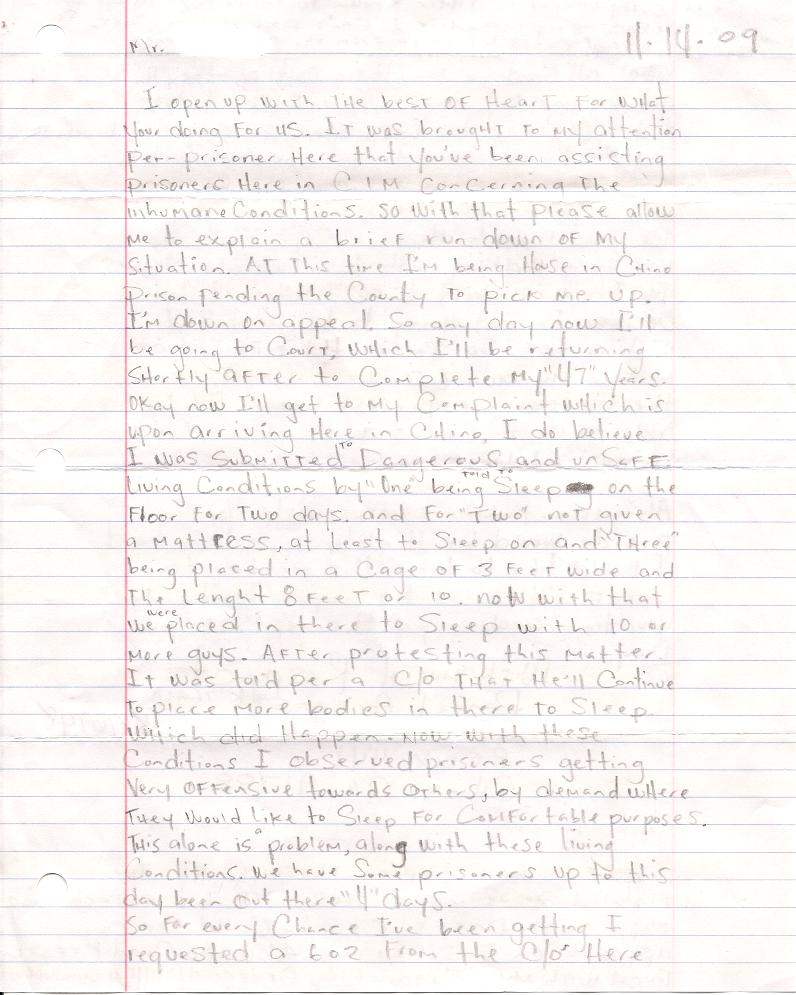 Mr.
11.14.09
I open up with the best of Heart for what
your doing for us. It was brought to my attention
per-prisoner Here that you've been assisting
prisoners Here in CIM Concerning The
inhumane Conditions. so with that please allow
me to explain a brief run down of my
Situation. At This time I'm being House in Chino
prison pending the County to pick me up.
I'm down on appeal. So any day now I'll
be going to Court, which I'll be returning
shortly after to Complete my "47" years.
Okay now I'll get to my Complaint which is
upon arriving Here in Chino, I do believe
I was submitted to Dangerous and unsafe
Living Conditions by "One" being told to Sleep on the
Floor for Two days. and for "Two" not given
a mattress, at least to Sleep on and "Three"
being placed in a Cage of 3 Feet wide and
The Lenght 8 feet or 10. now with that
we were placed in there to Sleep with 10 or
more guys. After protesting this matter.
It was told per a C/O That He'll Continue
to place more bodies in there to Sleep.
Which did Happen. Now with these
Conditions I observed prisoners getting
Very offensive towards others, by demand where
They would like to Sleep for Comfortable purposes.
This alone is a problem, along with these living
Conditions. We have Some prisoners up to this
day been out there "4" days.
So far every Chance I've been getting I
requested a 602 from the C/O's Here